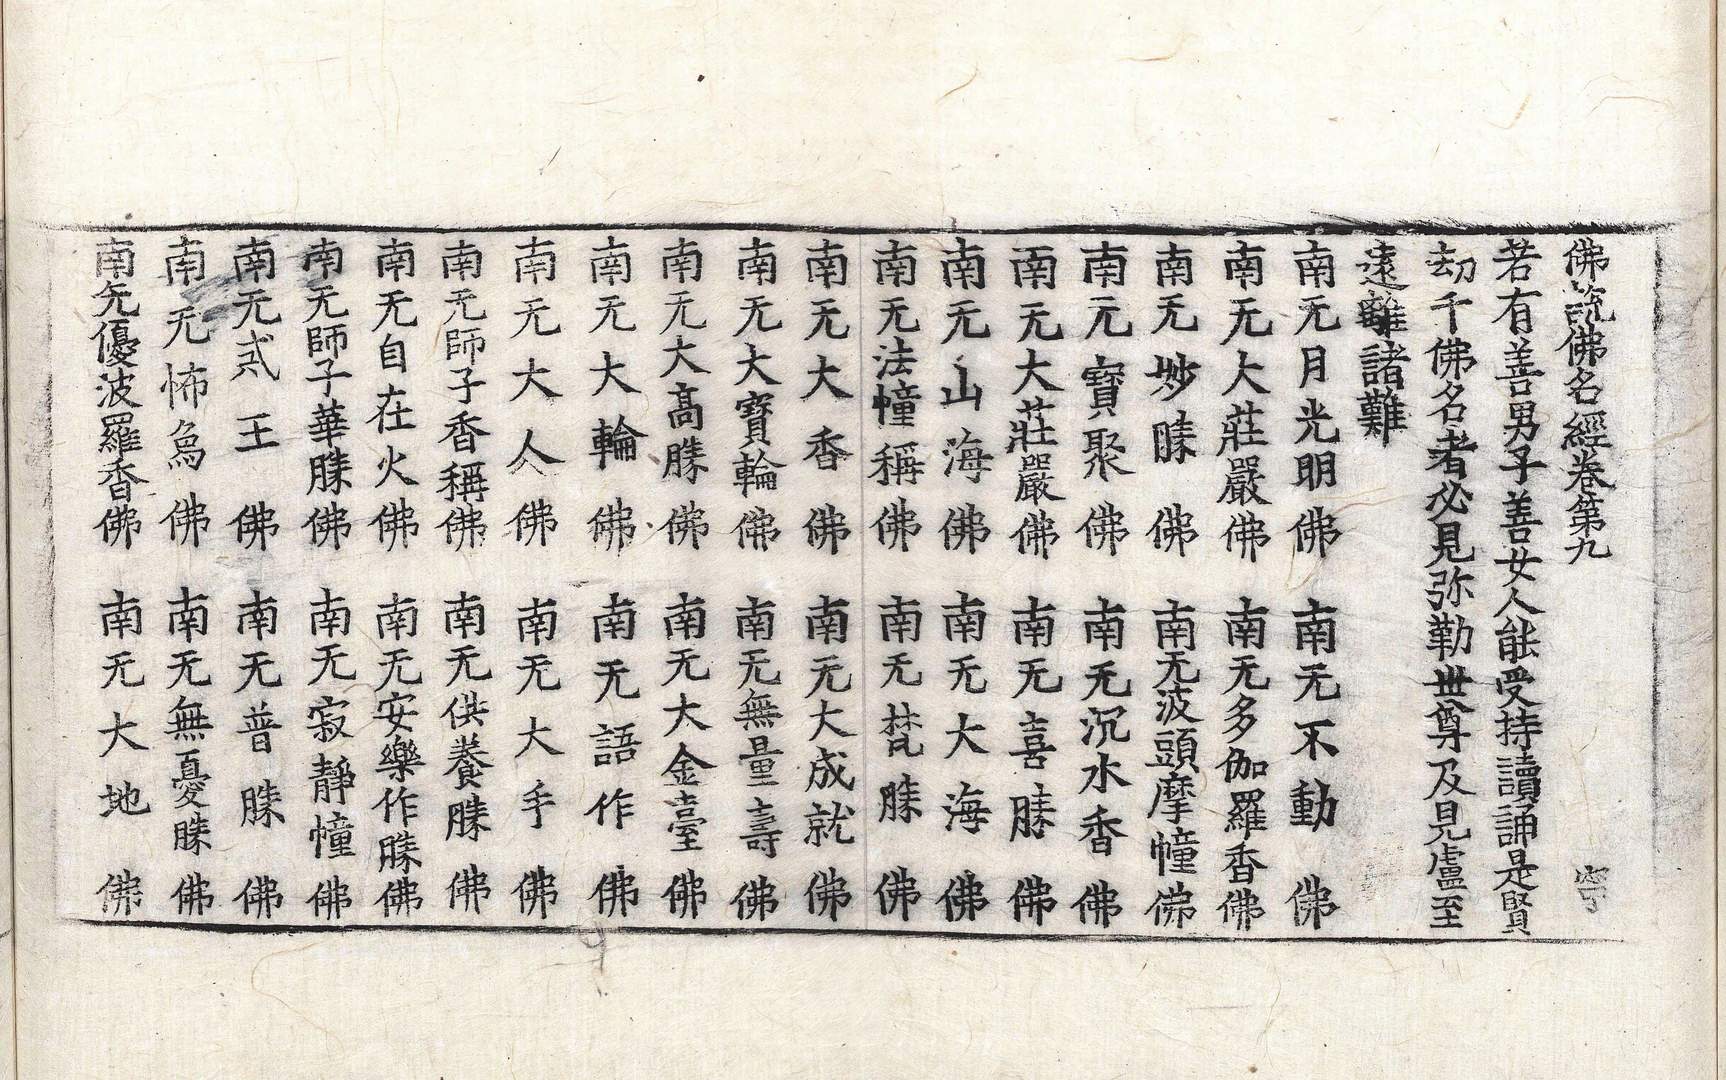 佛說佛名經卷第九 寧
若有善男子善女人能受持讀誦是賢
劫千佛名者必見弥勒世尊及見盧至
遠離諸難
南无月光明佛 南无不動佛
南无大莊嚴佛 南无多伽羅香佛
南无妙勝佛 南无波頭摩幢佛
南无寶聚佛 南无沉水香佛
南无大莊嚴佛 南无喜勝佛
南无山海佛 南无大海佛
南无法幢稱佛 南无梵勝佛
南无大香佛 南无大成就佛
南无大寶輪佛 南无無量壽佛
南无大髙勝佛 南无大金臺佛
南无大輪佛 南无語作佛
南无大人佛 南无大手佛
南无師子香稱佛 南无供養勝佛
南无自在火佛 南无安樂作勝佛
南无師子華勝佛 南无寂靜幢佛
南无貳王佛 南无普勝佛
南无怖為佛 南无無憂勝佛
南无優波羅香佛 南无大地佛